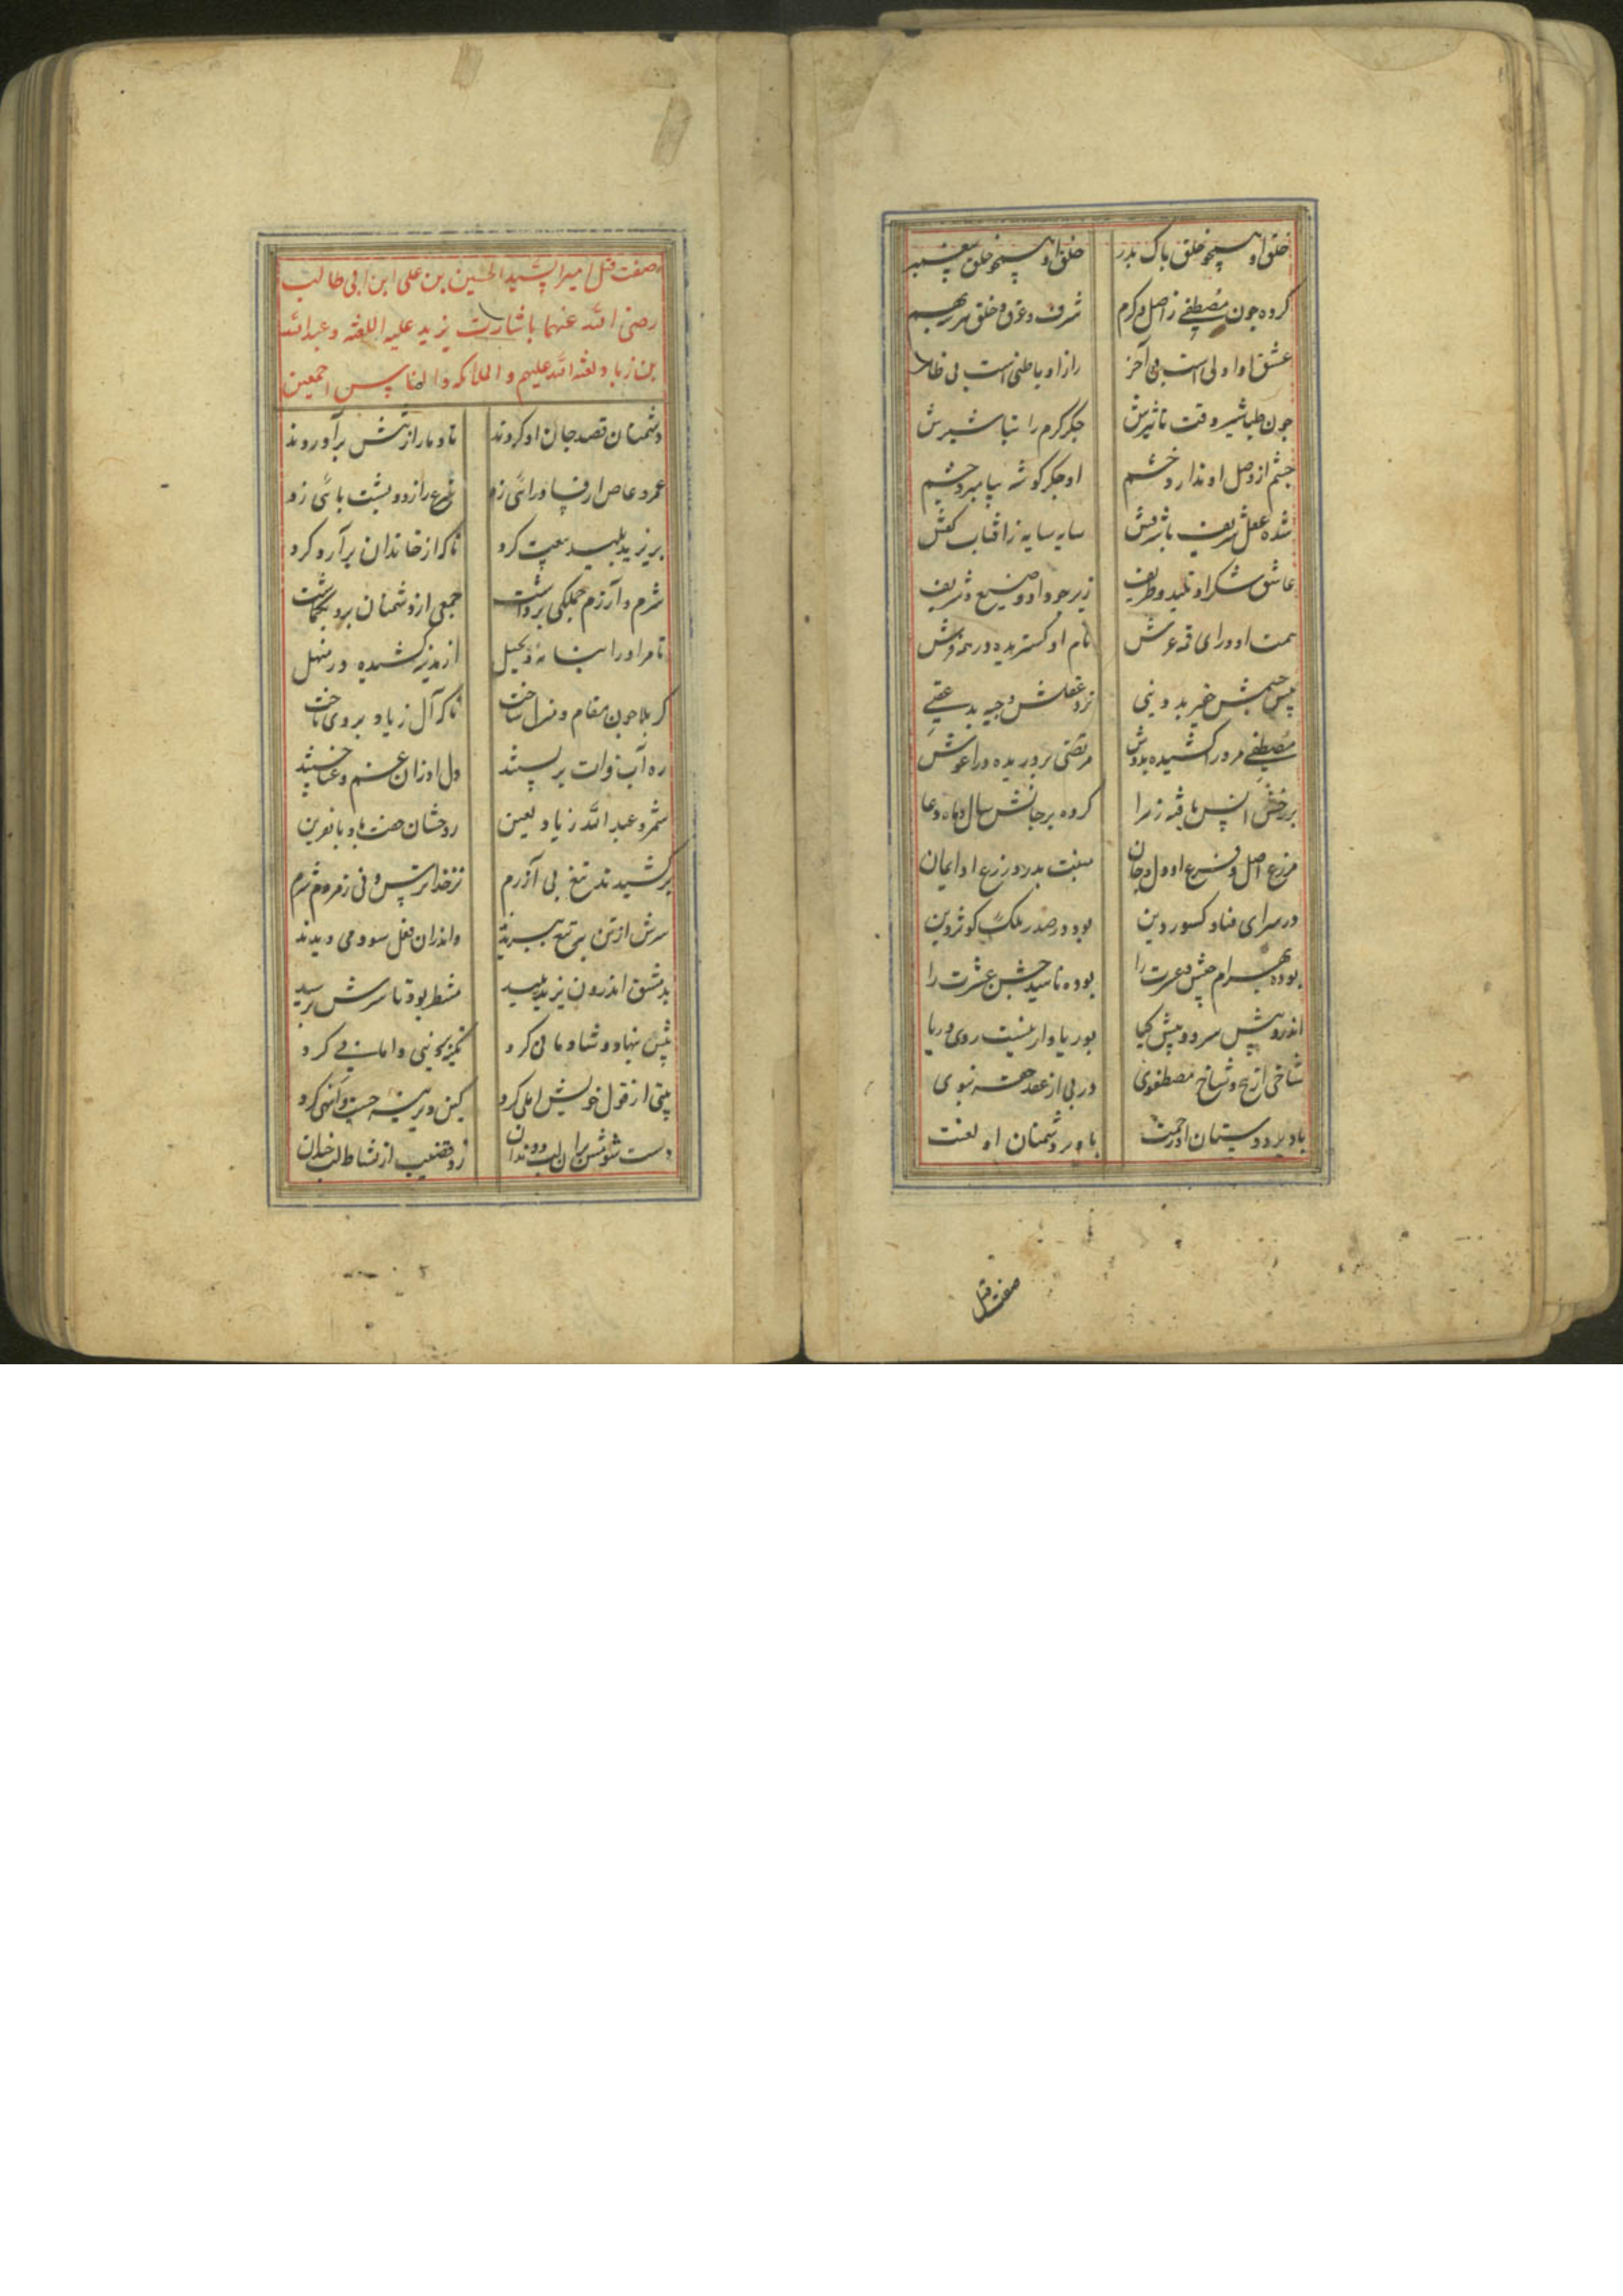 خلق او همچو خلق پاک پدر خلق او همچو خلق پیغمبر
کرده چون مصطفی ز اصل و کرم شرف و عرق و خلق هر سه بهم
عشق او اولی است بی آخر راز او باطنی است بی ظاهر
چون طباشیر وقت تاثیرش جگر گرم را تباشیرش
چشم از وصل او ندارد خشم او جگر گوشه پیامبر و چشم
شده عقل شریف با شرفش سایه سایه ز آفتاب کفش
عاشق شکر او تلید و طریف زیر جود او وضیع و شریف
همت او ورای قمه عرش نام او گستریده در همه فرش
پیش چشمش خیر بد دنیی نزد عقلش وجیه بد عقبی
مصطفی مر ورا کشیده بدوش مرتضی پروریده در آغوش
بر رخش انس یافته زهرا کرده بر جانش سال و ماه دعا
مزرع اصل و فرع او دل و جان منبت بد رو زرع او ایمان
در سرای فنا و کشور دین بود در صدر ملک کوثر دین
بوده بهرام جیش عزت را بوده ناهید جشن عشرت را
اندرو پیش سرو و پیش گیا بوریا وار نیست روی و ریا
شاخی از بیخ و شاخ مصطفوی دری از عقد حقه نبوی
باد بر دوستان او رحمت باد بر دشمنان او لعنت
صفت قتل
صفت قتل امیر الشهید الحسین بن علی ابن ابی طالب
رضی الله عنهما باشارت یزید علیه اللعنه و عبدالله
بن زیاد لعنه الله علیهم و الملائکه و الناس اجمعین
دشمنان قصد جان او کردند تا دمار از تنش برآوردند
عمرو عاص از فساد رائی زد شرع را زود پشت پائی زد
بر یزید پلید بیعت کرد تا که از خاندان برآرد گرد
شرم و آزرم جملگی برداشت جمعی از دشمنان برو بگماشت
تا مر او را بنامه و بحیل از مدینه کشیده در منهل
کربلا چون مقام و منزل ساخت تا که آل زیاد بر وی تاخت
ره آب فرات بر بستند دل او زان غم و عنا خستند
شمر و عبدالله زیاد لعین روحشان جفت باد با نفرین
برکشیدند تیغ بی آزرم نز خدا ترس و نی ز مردم شرم
سرش از تن به تیغ ببریدند و اندران فعل سود می دیدند
بدمشق اندرون یزید پلید منتظر بود تا سرش برسید
پیش بنهاد و شادمانی کرد تکیه بر دنیی و امانی کرد
بیتی از قول خویش املی کرد کین دیرینه جست و انهی کرد
دست شومش بران لب و دندان زد قضیب از نشاط لب خندان